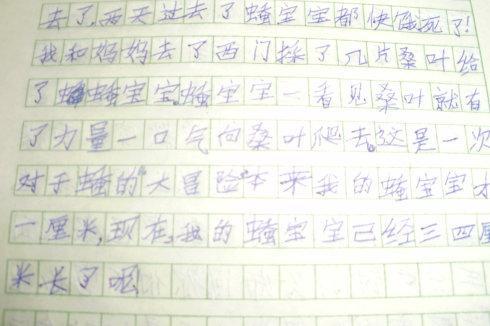 去了,两天过去了蚕宝宝都快饿死了!
我和妈妈去了西门採了几片桑叶给
了蚕宝宝,蚕宝宝一看见桑叶就有
了力量一口气向桑叶爬去。这是一次
对于蚕的"大冒险"本来我的蚕宝宝才
一厘米,现在,我的蚕宝宝已经三四厘
米长了呢